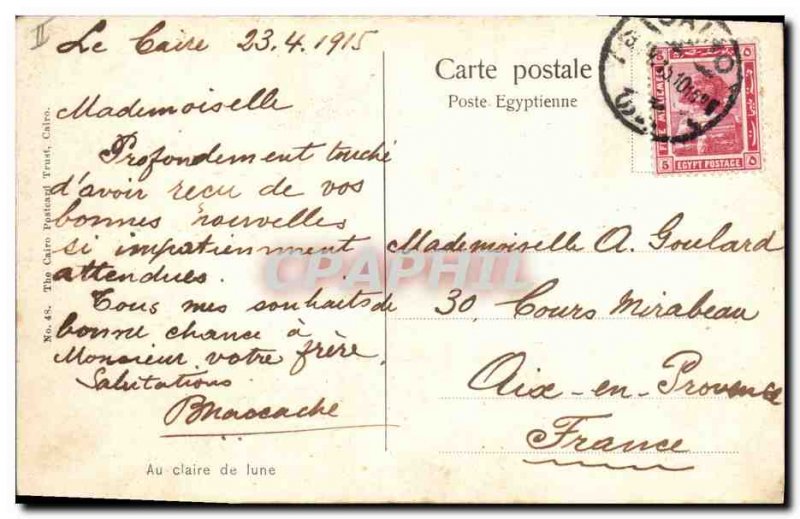 II
Le Caire 23.4.1915
Mademoiselle
Profondement touché
d'avoir reçu de vos
bonnes nouvelles
si impatiemment
attendues.
Tous mes souhaits de
bonne chance à
Monsieur votre frère.
Salutations
Au claire de lune
No. 48. The Cairo Postcard Trust, Cairo.
Carte postale
Poste Egyptienne
CAIRO
FIVE MILLIEMES
5 EGYPT POSTAGE ٥
Mademoiselle A. Goulard
30, Cours Mirabeau
Aix-en-Provence
France
CPAPHIL